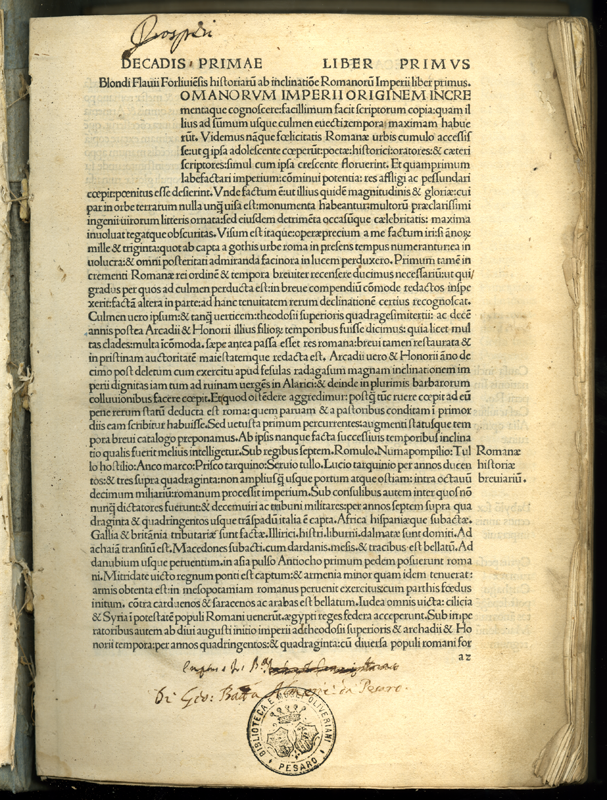 DECADIS PRIMAE LIBER PRIMVS
Blondi Flauii Forliuiẽsis historiarũ ab inclinatiõe Romanorũ Imperii liber primus.
OMANORVM IMPERII ORIGINEM INCRE
mentaque cognoscere: facillimum facit scriptorum copia: quam il
lius ad sũmum usque culmen euecti tempora maximam habue
rũt. Videmus nãque fœlicitati Romanæ urbis cumulo accessis
se: ut q ipsa adolescente cœperũt: poetæ: historici: oratores: & cæteri
scriptores: simul cum ipsa crescente floruerint. Et quamprimum
labefactari imperium: cõminui potentia: res affligi ac pessundari
cœpit: pœnitus esse desierint. Vnde factum é: ut illius quidẽ magnitudinis & gloriæ: cui
par in orbe terrarum nulla unq̃ uisa est: monumenta habeantur: multorũ præclarissimi
ingenii uirorum litteris ornata: sed eiusdem detrimẽta occasũque cælebritatis: maxima
inuoluat tegatque obscuritas. Visum est itaque: operæprecium a me factum iri: si ãnos:
mille & triginta: quot ab capta a gothis urbe roma in præsens tempus numerantur: ea in
uolucra: & omni posteritati admiranda facinora in lucem perduxero. Primum tamẽ in
crementi Romanæ rei ordinẽ & tempora breuiter recensere ducimus necessariũ: ut qui
gradus per quos ad culmen perducta est: in breue compendiũ cõmode redactos inspe
xerit: factã altera in parte: ad hanc tenuitatem rerum declinationẽ certius recognoscat.
Culmen uero ipsum: & tanq̃ uerticem: theodosii superioris quadragesimitertii: ac decẽ
annis postea Arcadii & Honorii illius filiorum temporibus fuisse dicimus: quia licet mul
tas clades: multa icõmoda. sæpe antea passa esset res romana: breui tamen restaurata &
in pristinam auctoritatẽ maiestatemque redacta est. Arcadii uero & Honorii ãno de
cimo post deletum cum exercitu apud fesulas radagasum magnam inclinationem im
perii dignitas iam tum ad ruinam uergẽs in Alarici: & deinde in plurimis barbarorum
colluuionibus facere cœpit. Et quod ostẽdere aggredimur: postq̃ tũc ruere cœpit ad eũ
pene rerum statũ deducta est roma: quem paruam & a pastoribus conditam i primor
diis eam scribitur habuisse. Sed uetusta primum percurrentes: augmenti statusque tem
pora breui catalogo præponamus. Ab ipsis nanque facta successiuis temporibus inclina
tio qualis fuerit melius intelligetur. Sub regibus septem. Romulo. Numapompilio: Tul
lo hostilio: Anco marco: Prisco tarquino: Seruio tullo. Lucio tarquinio per annos ducen
tos: & tres supra quadraginta: non amplius q̃ usque portum atque ostiam: intra octauũ
decimum miliariũ: romanum processit imperium. Sub consulibus autem inter quos nõ
nunq̃ dictatores fuerunt: & decemuiri ac tribuni militares: per annos septem supra qua
draginta & quadringentos usque trãspadũ italia ẽ capta. Africa hispaniæque subactæ.
Gallia & britãnia tributariæ sunt factæ. Illirici. histri. liburni. dalmatæ sunt domiti. Ad
achaiã transitũ est. Macedones subacti. cum dardanis. mesis. & tracibus est bellatũ. Ad
danubium usque peruentum. in asia pulso Antiocho primum pedem posuerunt roma
ni. Mitridate uicto regnum ponti est captum: & armenia minor quam idem tenuerat:
armis obtenta est: in mesopotamiam romanus peruenit exercitus: cum parthis fœdus
initum. cõtra carduenos & saracenos ac arabas est bellatum. Iudea omnis uicta: cilicia
& Syria i potestatẽ populi Romani uenerũt. ægypti reges federa acceperunt. Sub impe
ratoribus autem ab diui augusti initio imperii ad theodosii superioris & archadii & Ho
norii tempora: per annos quadringentos: & quadraginta: cũ diuersa populi romani for
Romanæ
historiæ
breuiariũ.
a2
Di Giov: Batta Almerici da Pesaro.
BIBLIOTECA E MUSEI OLIVERIANI
PESARO